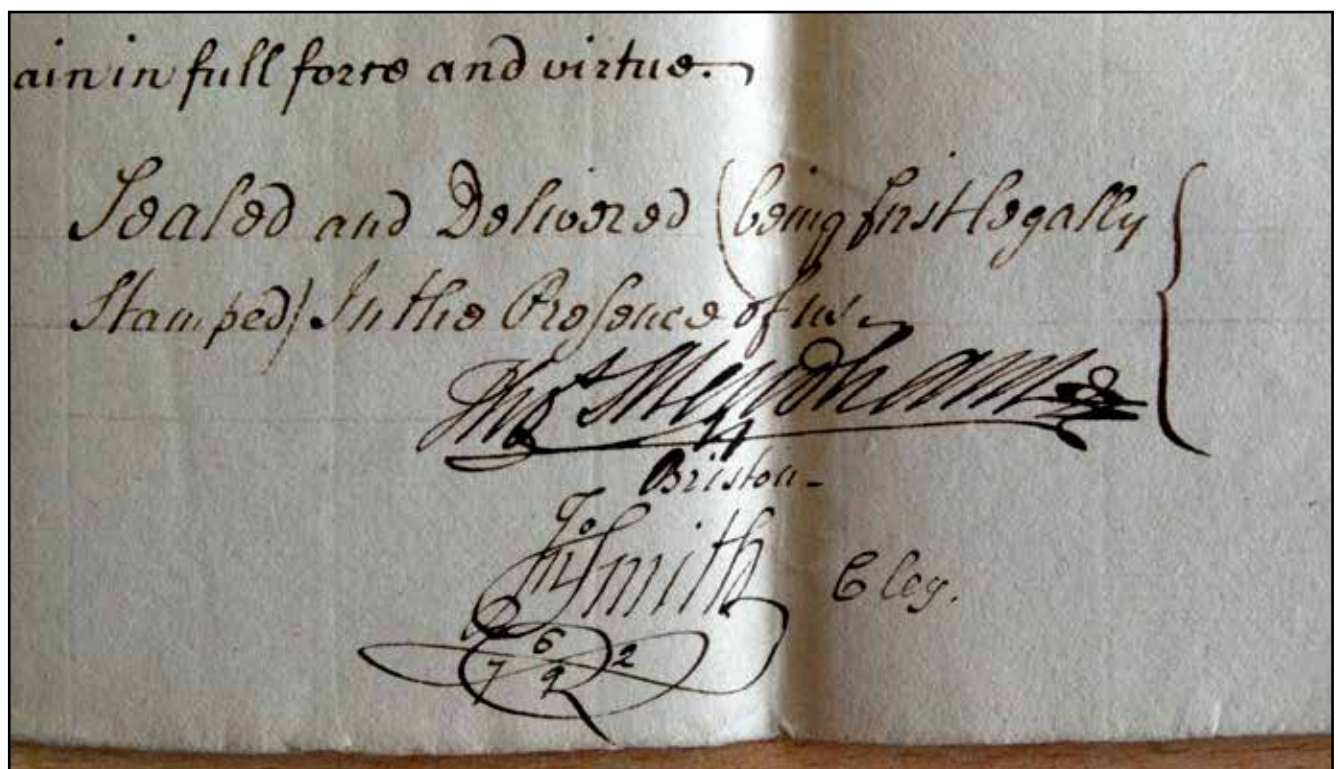 ain in full force and virtue.
Sealed and Delivered (being first legally
Stamped) In the Presence of us.
Thos Mendham
Briston
Jno Smith Cley.
6
7 9 2